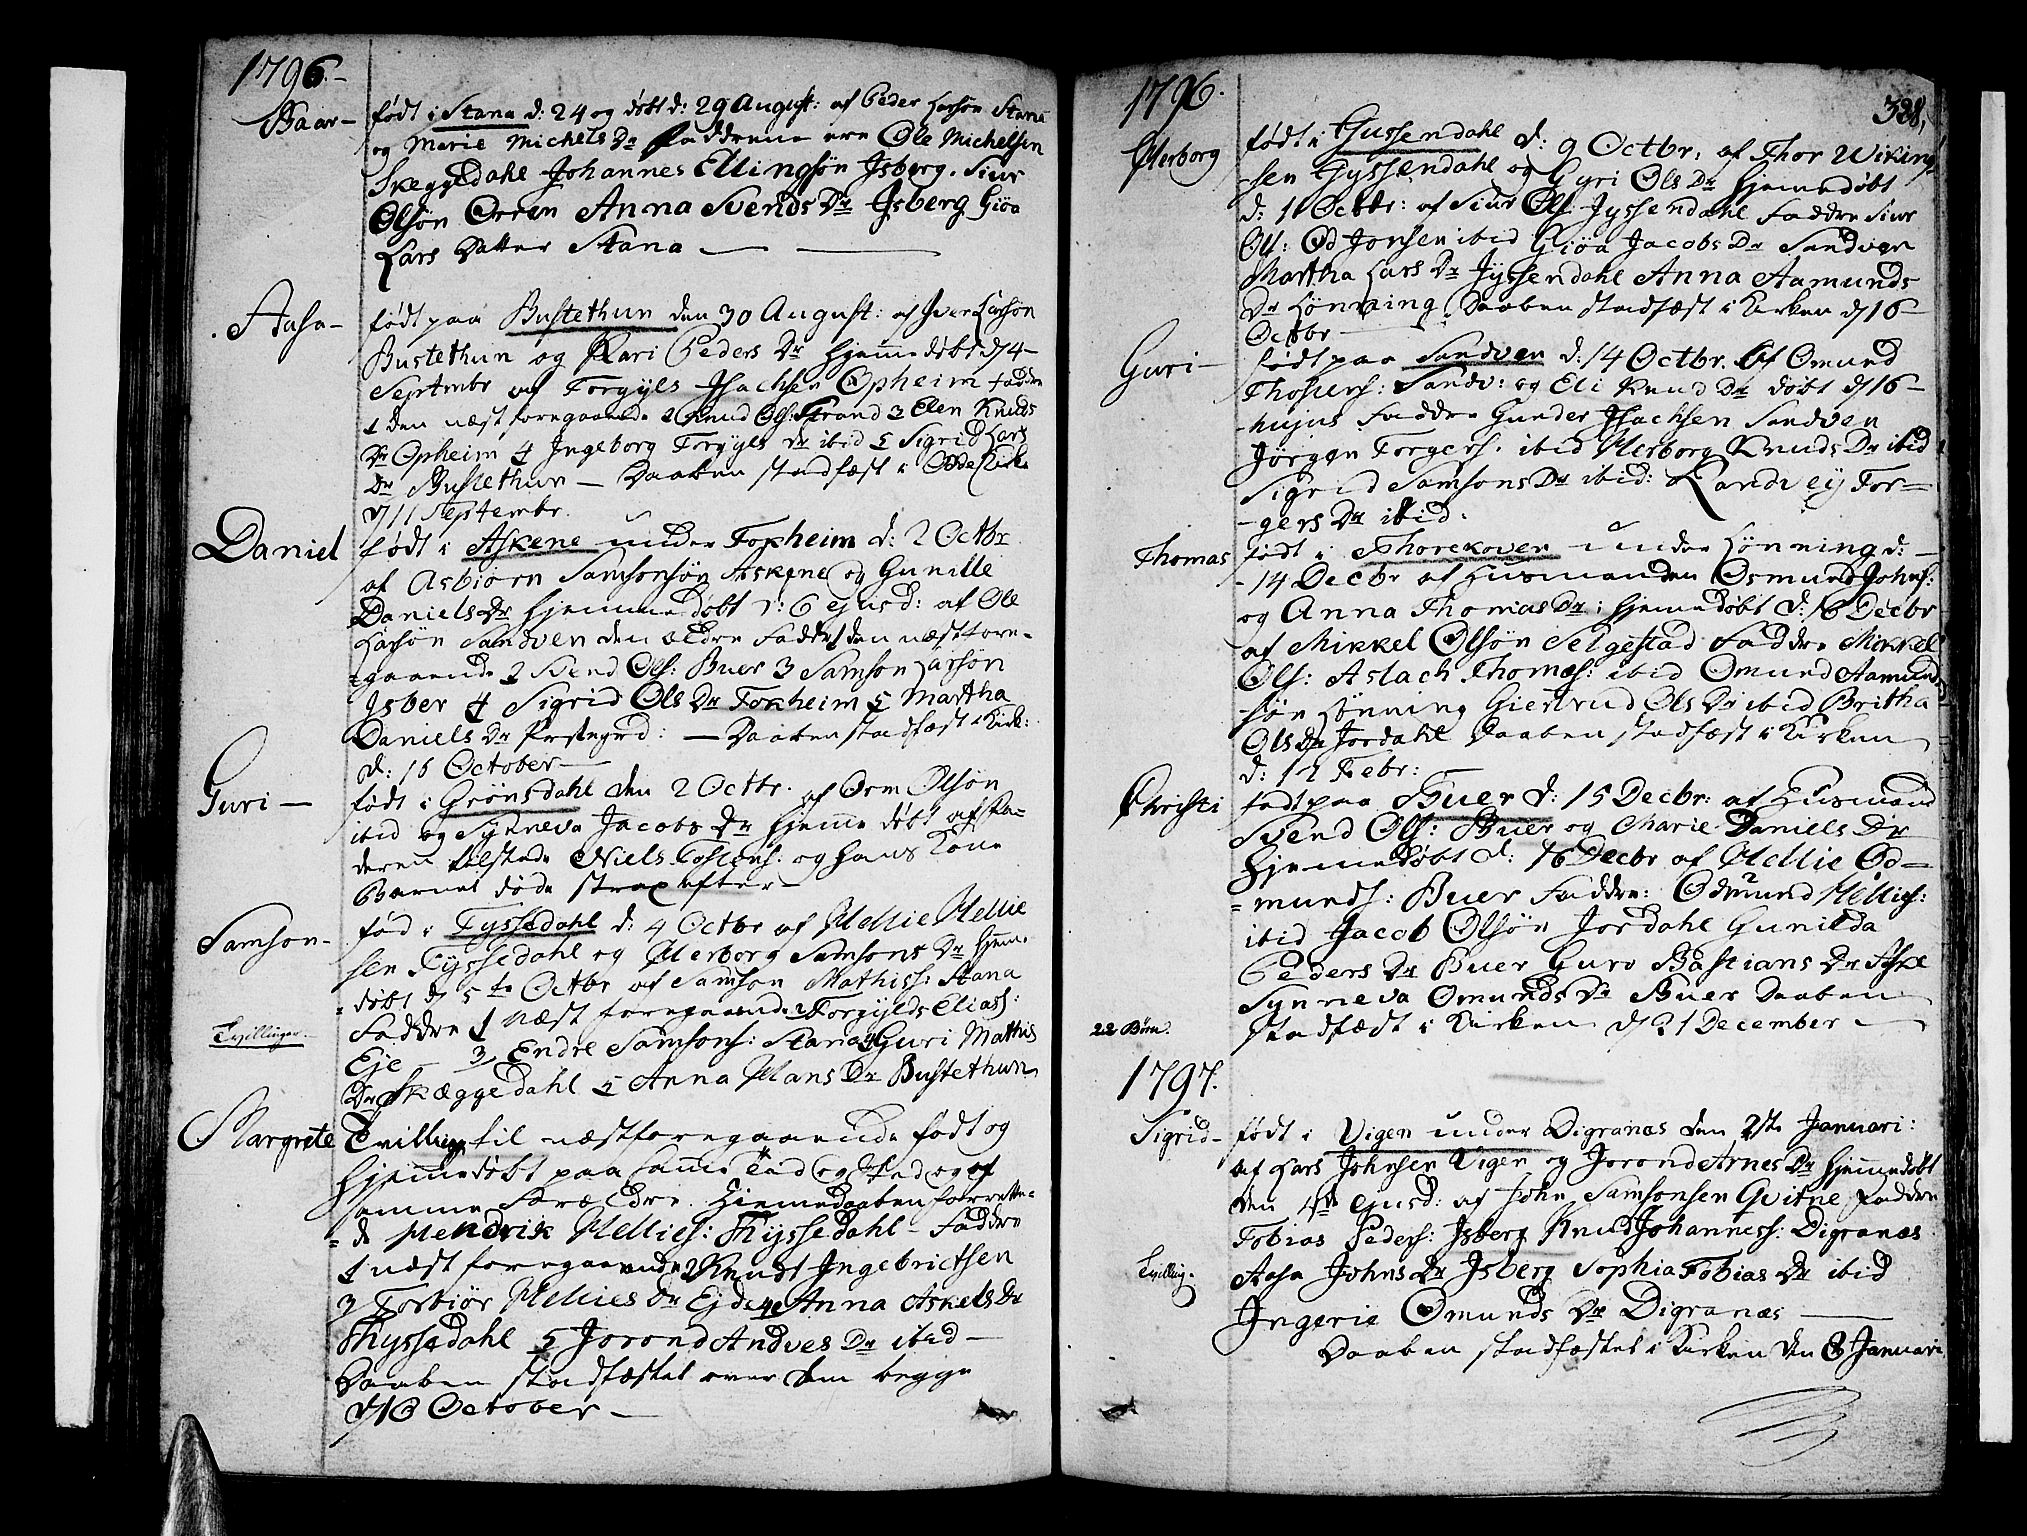 1796.-
Baar-
født i Stana d: 24 og døbt d: 29 August: af Peder Larsøn Stana
og Marie Michels Dr Faddrene ere Ole Michelsen
Skeggedahl Johannes Ellingsøn Isberg. Siur
Olsøn Orren Anna Svends Dr Isberg Giøa
Lars Datter Stana —
Aasa-
født paa Bustethun den 30 August: af Iver Larsøn
Bustethun og Kari Peders Dr Hjemedøbt d 4-
Septmbr af Torgyls Isachsen Opheim Faddre
1 den næst foregaaende 2 Knud Ols: Strand 3 Elen Knuds
Dr Opheim 4 Ingeborg Torgyls Dr ibid 5 Sigrid Lars
Dr Bustethun — Daaben stadfæst i Odde Kirke
d 11 Septembr.
Daniel
født i Askene under Tokheim d: 2 Octbr
af Asbiørn Samsonsøn Askene og Gunille
Daniels Dr Hjemmedøbt d: 6 ejusd: af Ole
Larsøn Sandven den ældre Faddre 1 den næst fore-
=gaaende 2 Svend Ols: Buer 3 Samson Larsøn
Isber 4 Sigrid Ols Dr Tokheim 5 Martha
Daniels Dr Prstegrd: — Daaben stadfæst i Kirk:
d: 16 October
Guri —
født i Grønsdahl den 2 Octbr. af Orm Olsøn
ibid og Synneva Jacobs Dr Hjeme døbt af Fa-
deren tilstede Niels Tostens: og hans Kone
Barnet døde strax efter
Samson-
fød i Tyssedahl d: 4 Octbr af Hellie Hellie
sen Tyssedahl og Herborg Samsons Dr Hjem-
=døbt d 5te Octbr af Samson Mathiss: Stana
Faddre 1 næst foregaaende 2 Torgylds Eliass:
Eje 3 Endre Samsons: Stana 4 Guri Mathis
Dr Skæggedahl 5 Anna Hans Dr Bustethun
Tvillinger
Margrete
Tvilling til næstforegaaende født og
Hjemmedøbt paa samme Tiid og Sted og af
samme Foreældre. Hiemedaaben forrette-
=de Hendrik Hellies: Thyssedahl - Faddre
1 næst foregaaende 2 Knudt Ingebrictsen
3 Torbiør Hellies Dr Ejde 4 Anna Askels Dr
Thyssedahl 5 Jorond Andves Dr ibid —
Daaben stadfæstet over dem begge
d 16 October —
1796.
328,
Herborg
født i Tyssendahl d: 9 Octbr, af Thor Wiking
-sen Tyssendahl og Gyri Ols Dr Hjemedøbt
d: 1 Octbr: af Siur Ols: Tyssendahl Faddre Siur
Ols: Od Jonsen ibid Giøa Jacobs Dr Sandven
Martha Lars Dr Tyssendahl Anna Aamunds
Dr Lønning. Daaben stadfæst i Kirken d 16
Octbr —
Guri-
født paa Sandven d: 14 Octbr. af Omund
Thostens: Sandv: og Eli Knud Dr døbt d 16-
-hujus Faddre Gunder Isachsen Sandven
Jørgen Torgers. ibid Herborg Knuds Dr ibid
Sigrid Samsons Dr ibid: Randvey Tor-
-gers Dr ibid.
Thomas
født i Thorekoven under Lønning d:
-14 Decbr af Husmanden Osmund Johns:
og Anna Thomas Dr: Hjemedøbt d: 16 Decbr
af Mikkel Olsøn Selgestad Faddre Mikkel
Ols: Aslach Thomæs: ibid Omund Aamunds
søn Lønning Giertrud Ols Dr ibid Britha
Ols Dr Jordahl Daaben stadfæst i Kirken
d: 12 Febr:
Christi
født paa Buer d: 15 Decbr: af Husmand
Svend Ols: Buer og Marie Daniels Dr
Hjemedøbt d: 16 Decbr af Hellie Od-
=munds: Buer Faddre: Odmund Hellies:
ibid Jacob Olsøn Jordahl Gunilda
Peders Dr Buer Guro Bastians Dr Aske
Synneva Omunds Dr Buer Daaben
stadfæst i Kirken d 31 December
22 Børn.
1797.
Sigrid-
født i Vigen under Digranæs den 2de Januari:
af Lars Johnsen Vigen og Jorond Arnes Dr Hjemedøbt
den 4de ejusd: af John Samsonsen Qvitne Faddre
Tobias Peders: Isberg Knud Johanness: Digranæs
Aasa Johns Dr Isberg Sophia Tobias Dr ibid
Ingerie Omunds Dr Digranæs
Daaben stadfæstet i Kirken den 8 Januari
Tvilling.